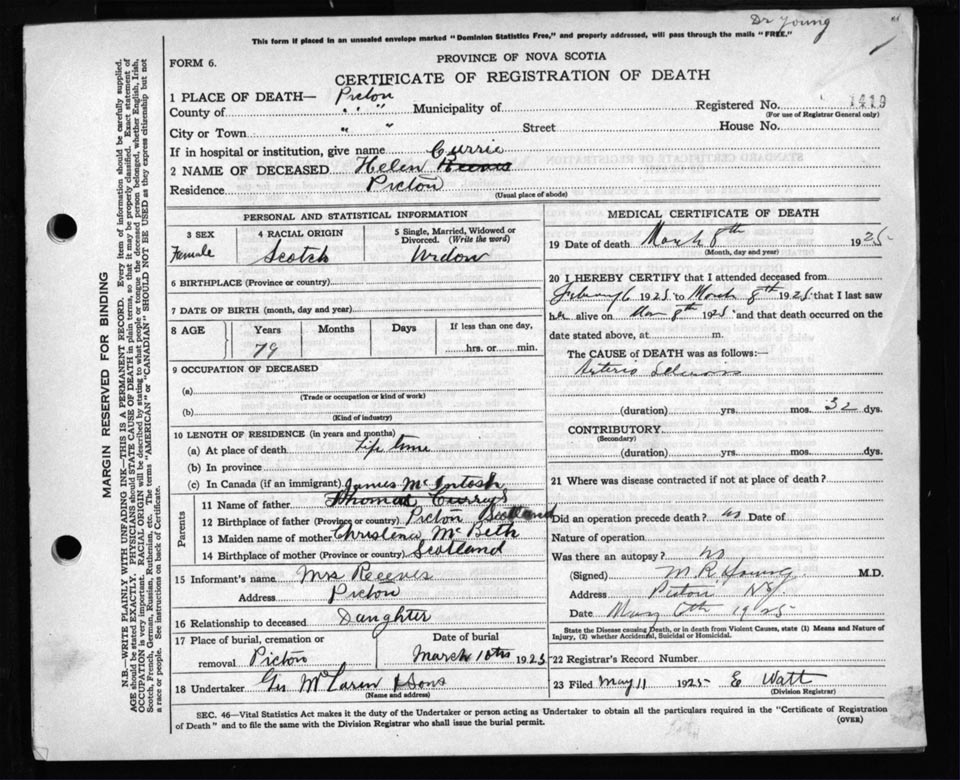 Dr Young
This form if placed in an unsealed envelope marked "Dominion Statistics Free," and properly addressed, will pass through the mails "FREE."
FORM 6.
PROVINCE OF NOVA SCOTIA
CERTIFICATE OF REGISTRATION OF DEATH
1 PLACE OF DEATH— Pictou
County of " " Municipality of Registered No. 1419
(For use of Registrar General only)
City or Town " " Street House No.
If in hospital or institution, give name Currie
2 NAME OF DECEASED Helen Reeves
Residence Pictou
(Usual place of abode)
PERSONAL AND STATISTICAL INFORMATION
3 SEX
Female
4 RACIAL ORIGIN
Scotch
5 Single, Married, Widowed or Divorced. (Write the word)
Widow
6 BIRTHPLACE (Province or country)
7 DATE OF BIRTH (month, day and year)
8 AGE Years Months Days If less than one day,
79 hrs. or min.
9 OCCUPATION OF DECEASED
(a)
(Trade or occupation or kind of work)
(b)
(Kind of industry)
10 LENGTH OF RESIDENCE (in years and months)
(a) At place of death Life time
(b) In province
(c) In Canada (if an immigrant) James McIntosh
Parents
11 Name of father Thomas Curry
12 Birthplace of father (Province or country) Pictou Scotland
13 Maiden name of mother Christena McBeth
14 Birthplace of mother (Province or country) Scotland
15 Informant's name Mrs Reeves
Address Pictou
16 Relationship to deceased Daughter
17 Place of burial, cremation or Date of burial
removal Pictou March 10th 1925
18 Undertaker Geo McLaren & Sons
(Name and address)
MEDICAL CERTIFICATE OF DEATH
19 Date of death March 8th 1925
(Month, day and year)
20 I HEREBY CERTIFY that I attended deceased from
February 6 1925 to March 8th 1925 that I last saw
her alive on Mar 8th 1925 and that death occurred on the
date stated above, at m.
The CAUSE of DEATH was as follows:—
Arterio Sclerosis
(duration) yrs. mos. 32 dys.
CONTRIBUTORY.
(Secondary)
(duration) yrs. mos. dys.
21 Where was disease contracted if not at place of death?
Did an operation precede death? no Date of
Nature of operation
Was there an autopay? no
(Signed) M R Young M.D.
Address Pictou NS
Date May 1925
State the Disease causing Death, or in death from Violent Causes, state (1) Means and Nature of
Injury, (2) whether Accidental, Suicidal or Homicidal.
22 Registrar's Record Number
23 Filed May 11 1925 E Watt
(Division Registrar)
SEC. 46—Vital Statistics Act makes it the duty of the Undertaker or person acting as Undertaker to obtain all the particulars required in the "Certificate of Registration
of Death" and to file the same with the Division Registrar who shall issue the burial permit.
(OVER)
MARGIN RESERVED FOR BINDING
N.B.—WRITE PLAINLY WITH UNFADING INK—THIS IS A PERMANENT RECORD. Every item of information should be carefully supplied.
AGE should be stated EXACTLY. PHYSICIANS should STATE CAUSE OF DEATH in plain terms, so that it may be properly classified. Exact statement of
OCCUPATION is very important. RACIAL ORIGIN will be described by stating to what people or tongue the deceased person belonged, whether English, Irish,
Scotch, French, German, Russian, Ruthenian, etc. The terms "AMERICAN" or "CANADIAN" SHOULD NOT BE USED as they express citizenship but not
a race or people. See instructions on back of Certificate.